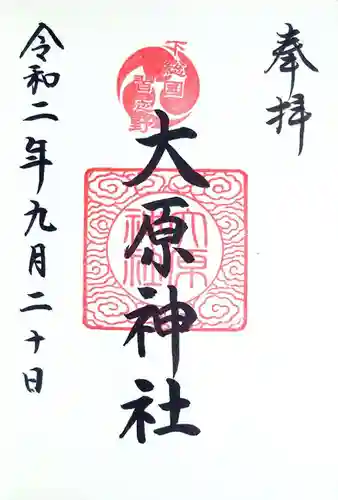 奉拝
下総国
習志野
大原神社
大原
神社
令和二年九月二十日